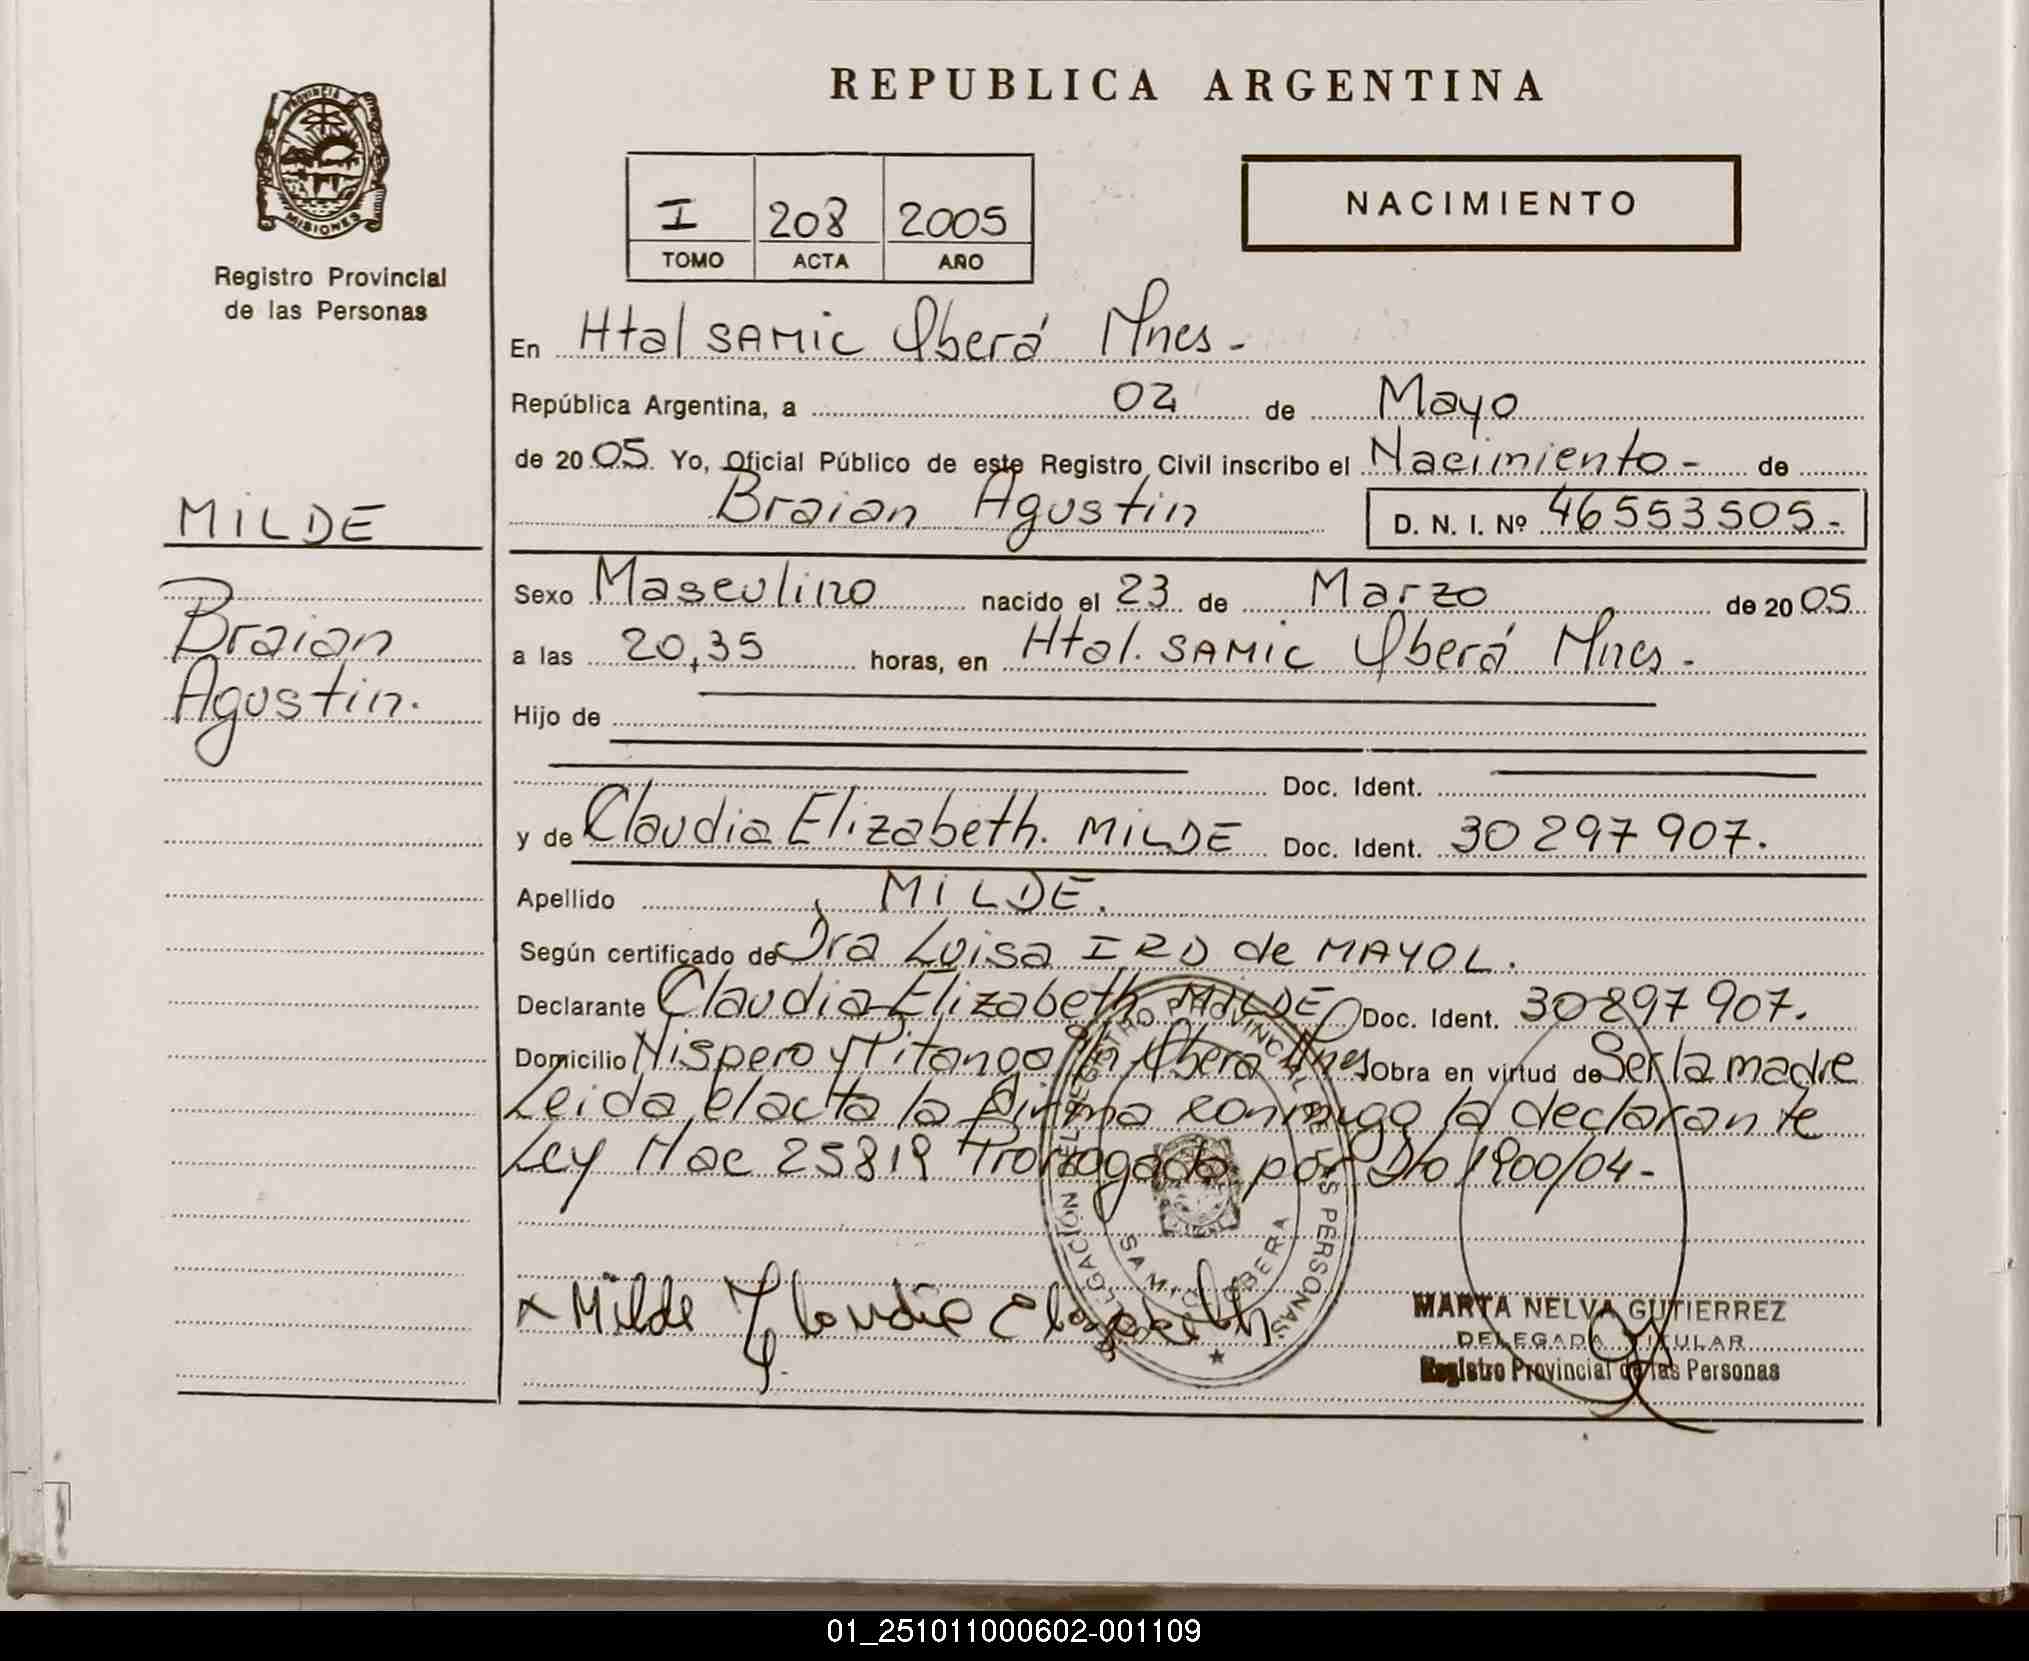 REPUBLICA ARGENTINA
PROVINCIA DE
MISIONES
Registro Provincial
de las Personas
I 208 2005
TOMO ACTA AÑO
NACIMIENTO
En Htal SAMIC Oberá Mnes.-
República Argentina, a 02 de Mayo
de 2005 Yo, Oficial Público de este Registro Civil inscribo el Nacimiento- de
Braian Agustin D. N. I. Nº 46553505.-
MILDE
Braian
Agustin.
Sexo Masculino nacido el 23 de Marzo de 2005
a las 20,35 horas, en Htal. SAMIC Oberá Mnes.-
Hijo de
Doc. Ident.
y de Claudia Elizabeth. MILDE Doc. Ident. 30297907.
Apellido MILDE.
Según certificado de Dra Luisa IRD de MAYOL.
Declarante Claudia Elizabeth MILDE Doc. Ident. 30297907.
Domicilio Nispero y Pitanga Oberá Mnes Obra en virtud de Ser la madre
Leida el acta la firma conmigo la declarante
Ley Nac 25819 Prorrogada por Dto 1900/04-
x Milde Claudia Elizabeth.
DELEGACION DEL REGISTRO PROVINCIAL DE LAS PERSONAS
SAMIC OBERA
MARTA NELVA GUTIERREZ
DELEGADA TITULAR
Registro Provincial de las Personas
01_251011000602-001109